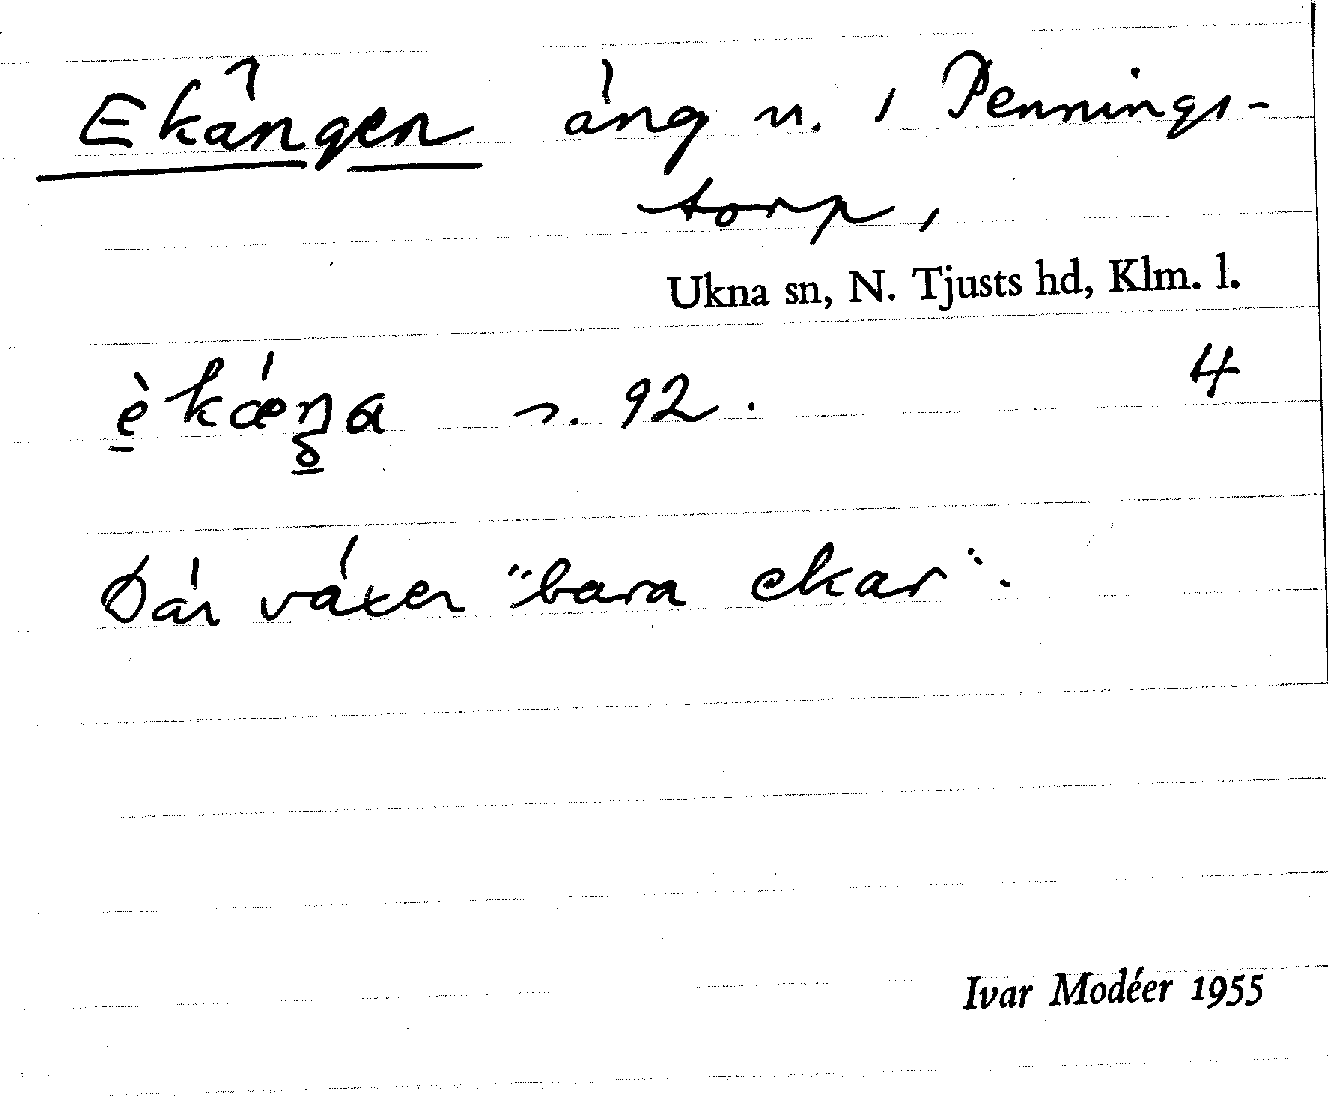 Ekängen äng n. i Pennings-
torp,
Ukna sn, N. Tjusts hd, Klm. l.
s. 92. 4
Där växer "bara ekar".
Ivar Modéer 1955